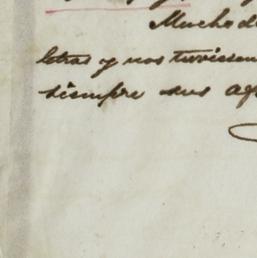 Mucho d
letras y nos tuviesen
siempre sus ag